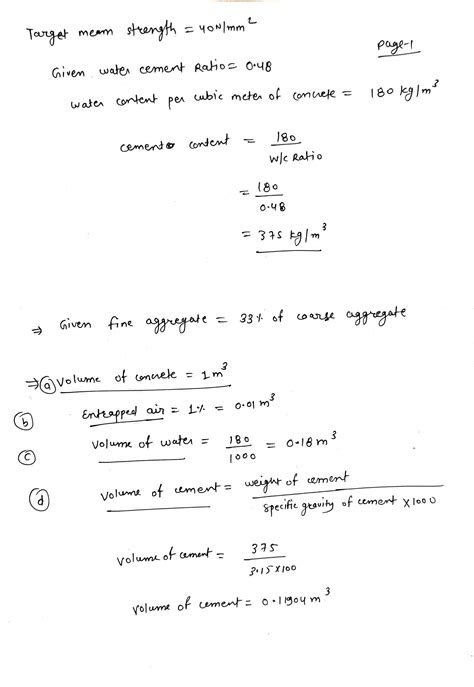 Target mean strength = 40N/mm²
Page-1
Given water cement Ratio = 0.48
water content per cubic meter of concrete = 180 kg/m³
cement content = 180 / W/c Ratio
= 180 / 0.48
= 375 kg/m³
⇒ Given fine aggregate = 33% of coarse aggregate
⇒ (a) Volume of concrete = 1m³
(b) Entrapped air = 1% = 0.01 m³
(c) Volume of water = 180 / 1000 = 0.18 m³
(d) volume of cement = weight of cement / specific gravity of cement × 1000
volume of cement = 375 / 3.15 × 100
volume of cement = 0.11904 m³